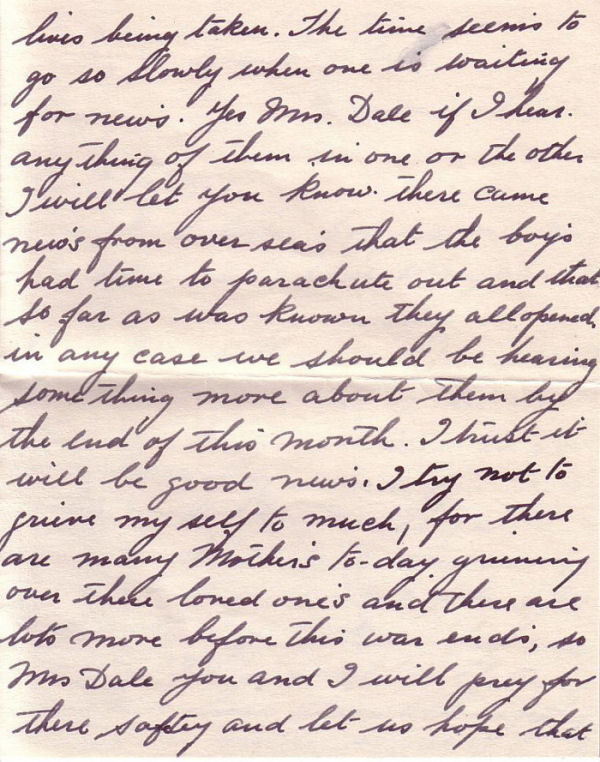 lives being taken. The time seems to
go so slowly when one is waiting
for news. Yes Mrs. Dale if I hear.
any thing of them in one or the other
I will let you know. there came
new's from over sea's that the boy's
had time to parachute out and that
so far as was known they all opened.
in any case we should be hearing
some thing more about them by
the end of this month. I trust it
will be good news. I try not to
grieve my self to much, for there
are many Mother's to-day grieving
over there loved one's and there are
lots more before this war ends, so
Mrs Dale you and I will prey for
there saftey and let us hope that